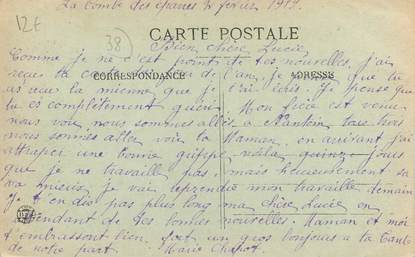 12€
La Combe des éparres 4 février 1917.
38
CARTE POSTALE
Bien chère Lucie
Comme je ne c'est point de tes nouvelles, j'ai
CORRESPONDANCE
ADRESSE
reçu ta de l'an, je que tu
as reçu la mienne que je t'ai écris. Je pense que
tu es complètement guérie. Mon frère est venu
nous voir, nous sommes allés à Nantoin tous trois
nous sommes allés voir la Maman, en arrivant j'ai
attraper une bonne grippe, voila quinze jours
que je ne travaille pas, mais heureusement sa
va mieux, je vai reprendre mon travaille demain
Je t'en dis pas plus long ma chère Lucie en
attendant de tes bonnes nouvelles. Maman et moi
t'embrassont bien. fait un gros bonjours a ta Tante
de notre part. Marie Chapot